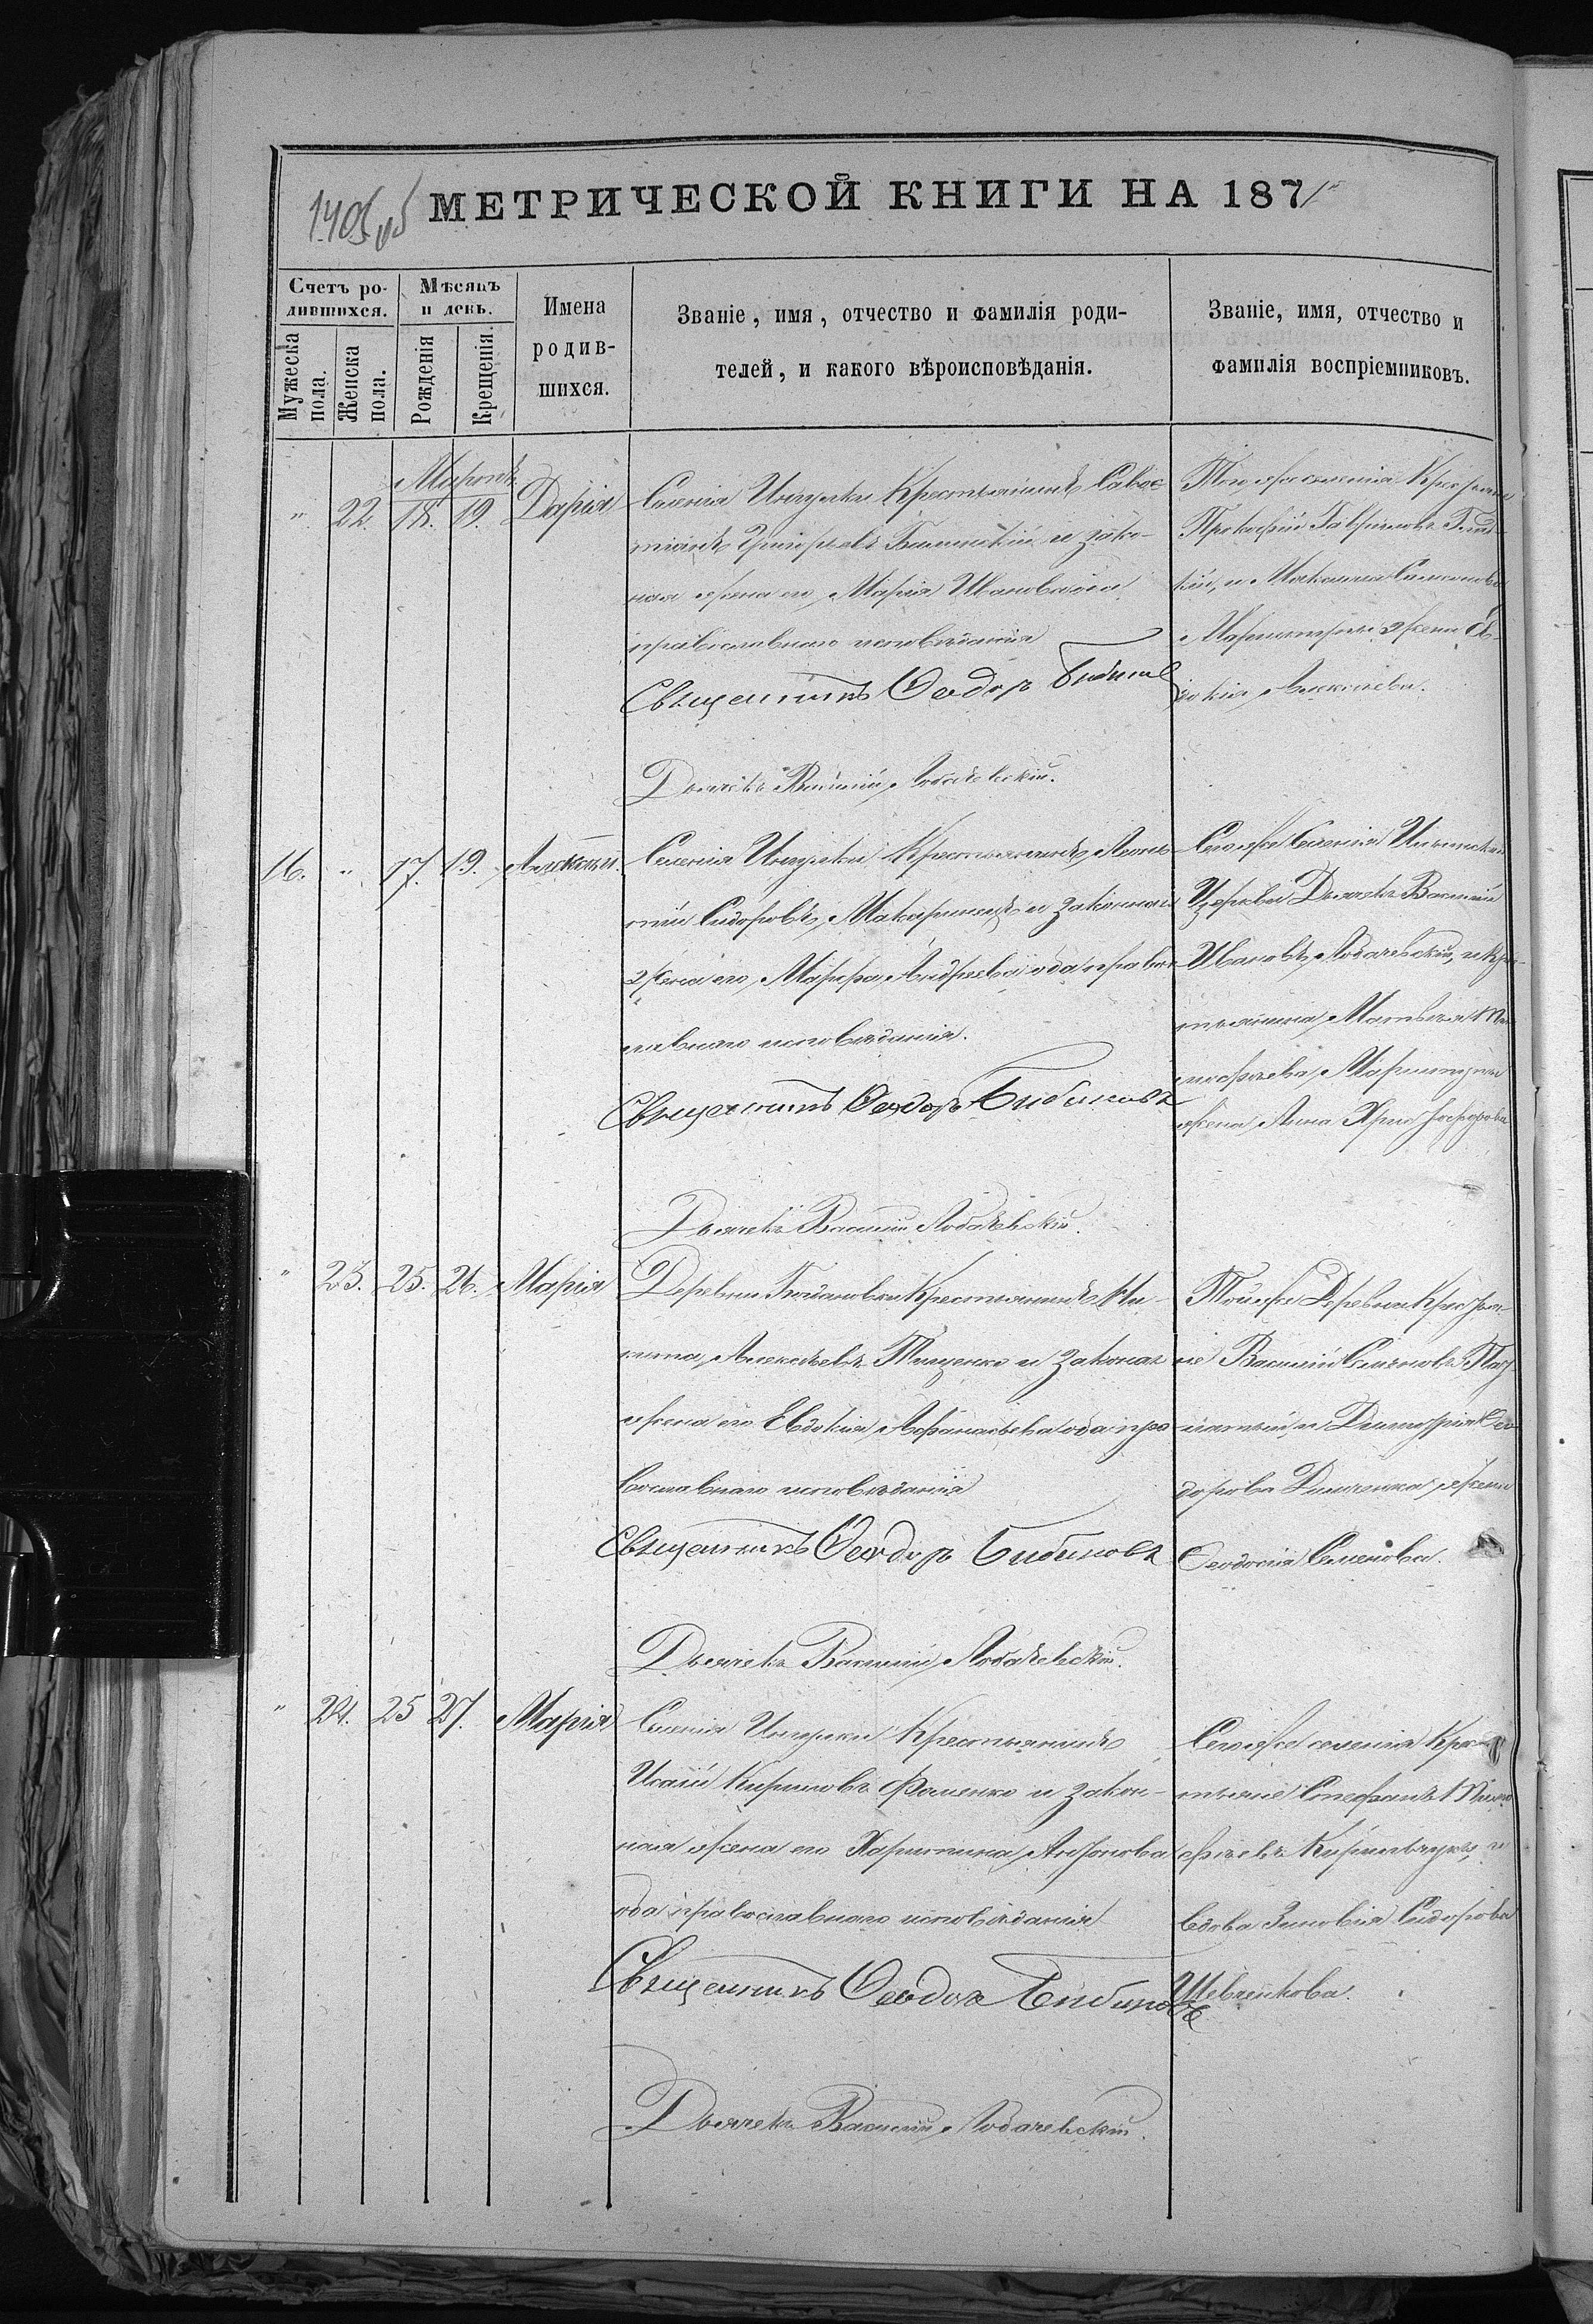 МЕТРИЧЕСКОЙ КНИГИ НА 1871
Счетъ ро-
дившихся.
Мужеска
пола.
Женска
пола.
Мѣсяцъ
и день.
Рожденія
Крещенія.
Имена
родив-
шихся.
Званіе, имя, отчество и фамилія роди-
телей, и какого вѣроисповѣданія.
Званіе, имя, отчество и
фамилія воспріемниковъ.
Мартъ
" 22. 18. 19. Дарія
Селенія Крестьянинъ
Григорьевъ и зако-
ная жена его Марія Иванова оба
православнаго исповѣданія
Священникъ Ѳеодоръ
Дьячекъ Василій Лобачевскій.
Того же селенія
Прокофій Гавриловъ
кій, и
жена Ев-
докія Алексѣева.
16. " 17. 19. Алексѣй.
Селенія Крестьянинъ Леон-
тій Сидоровъ и законная
жена его Марфа Андреева оба правос-
лавнаго исповѣданія.
Священникъ Ѳеодоръ Бибиковъ
Дьячекъ Василій Лобачевскій.
Сего же Селенія
Церкви Дьячекъ Василій
Ивановъ Лобачевскій, и Крес-
тьянина Матвѣя
жена Анна Христофорова
" 23. 25. 26. Марія
Деревни Крестьянинъ Ни-
кита Алексѣевъ Тищенко и законая
жена его Евдокія Афанасьева оба пра
вославнаго исповѣданія
Священникъ Ѳеодоръ Бибиковъ
Дьячекъ Василій Лобачевскій.
Той же Деревни Крестьян-
не Василій Семеновъ
и Димитрія Сѳо
дорова жена
Ѳеодосія Семенова.
" 24. 25 27. Марія
Селенія Крестьянинъ
Исаій Кириловъ Фоменко и закон-
ная жена его Харитина Антонова
оба православнаго исповѣданія
Священникъ Ѳеодоръ Бибиковъ
Дьячекъ Василій Лобачевскій.
Сего же селенія Крес
тьяне Стефанъ
и
вдова Зиновія Сидорова
Шевченкова.